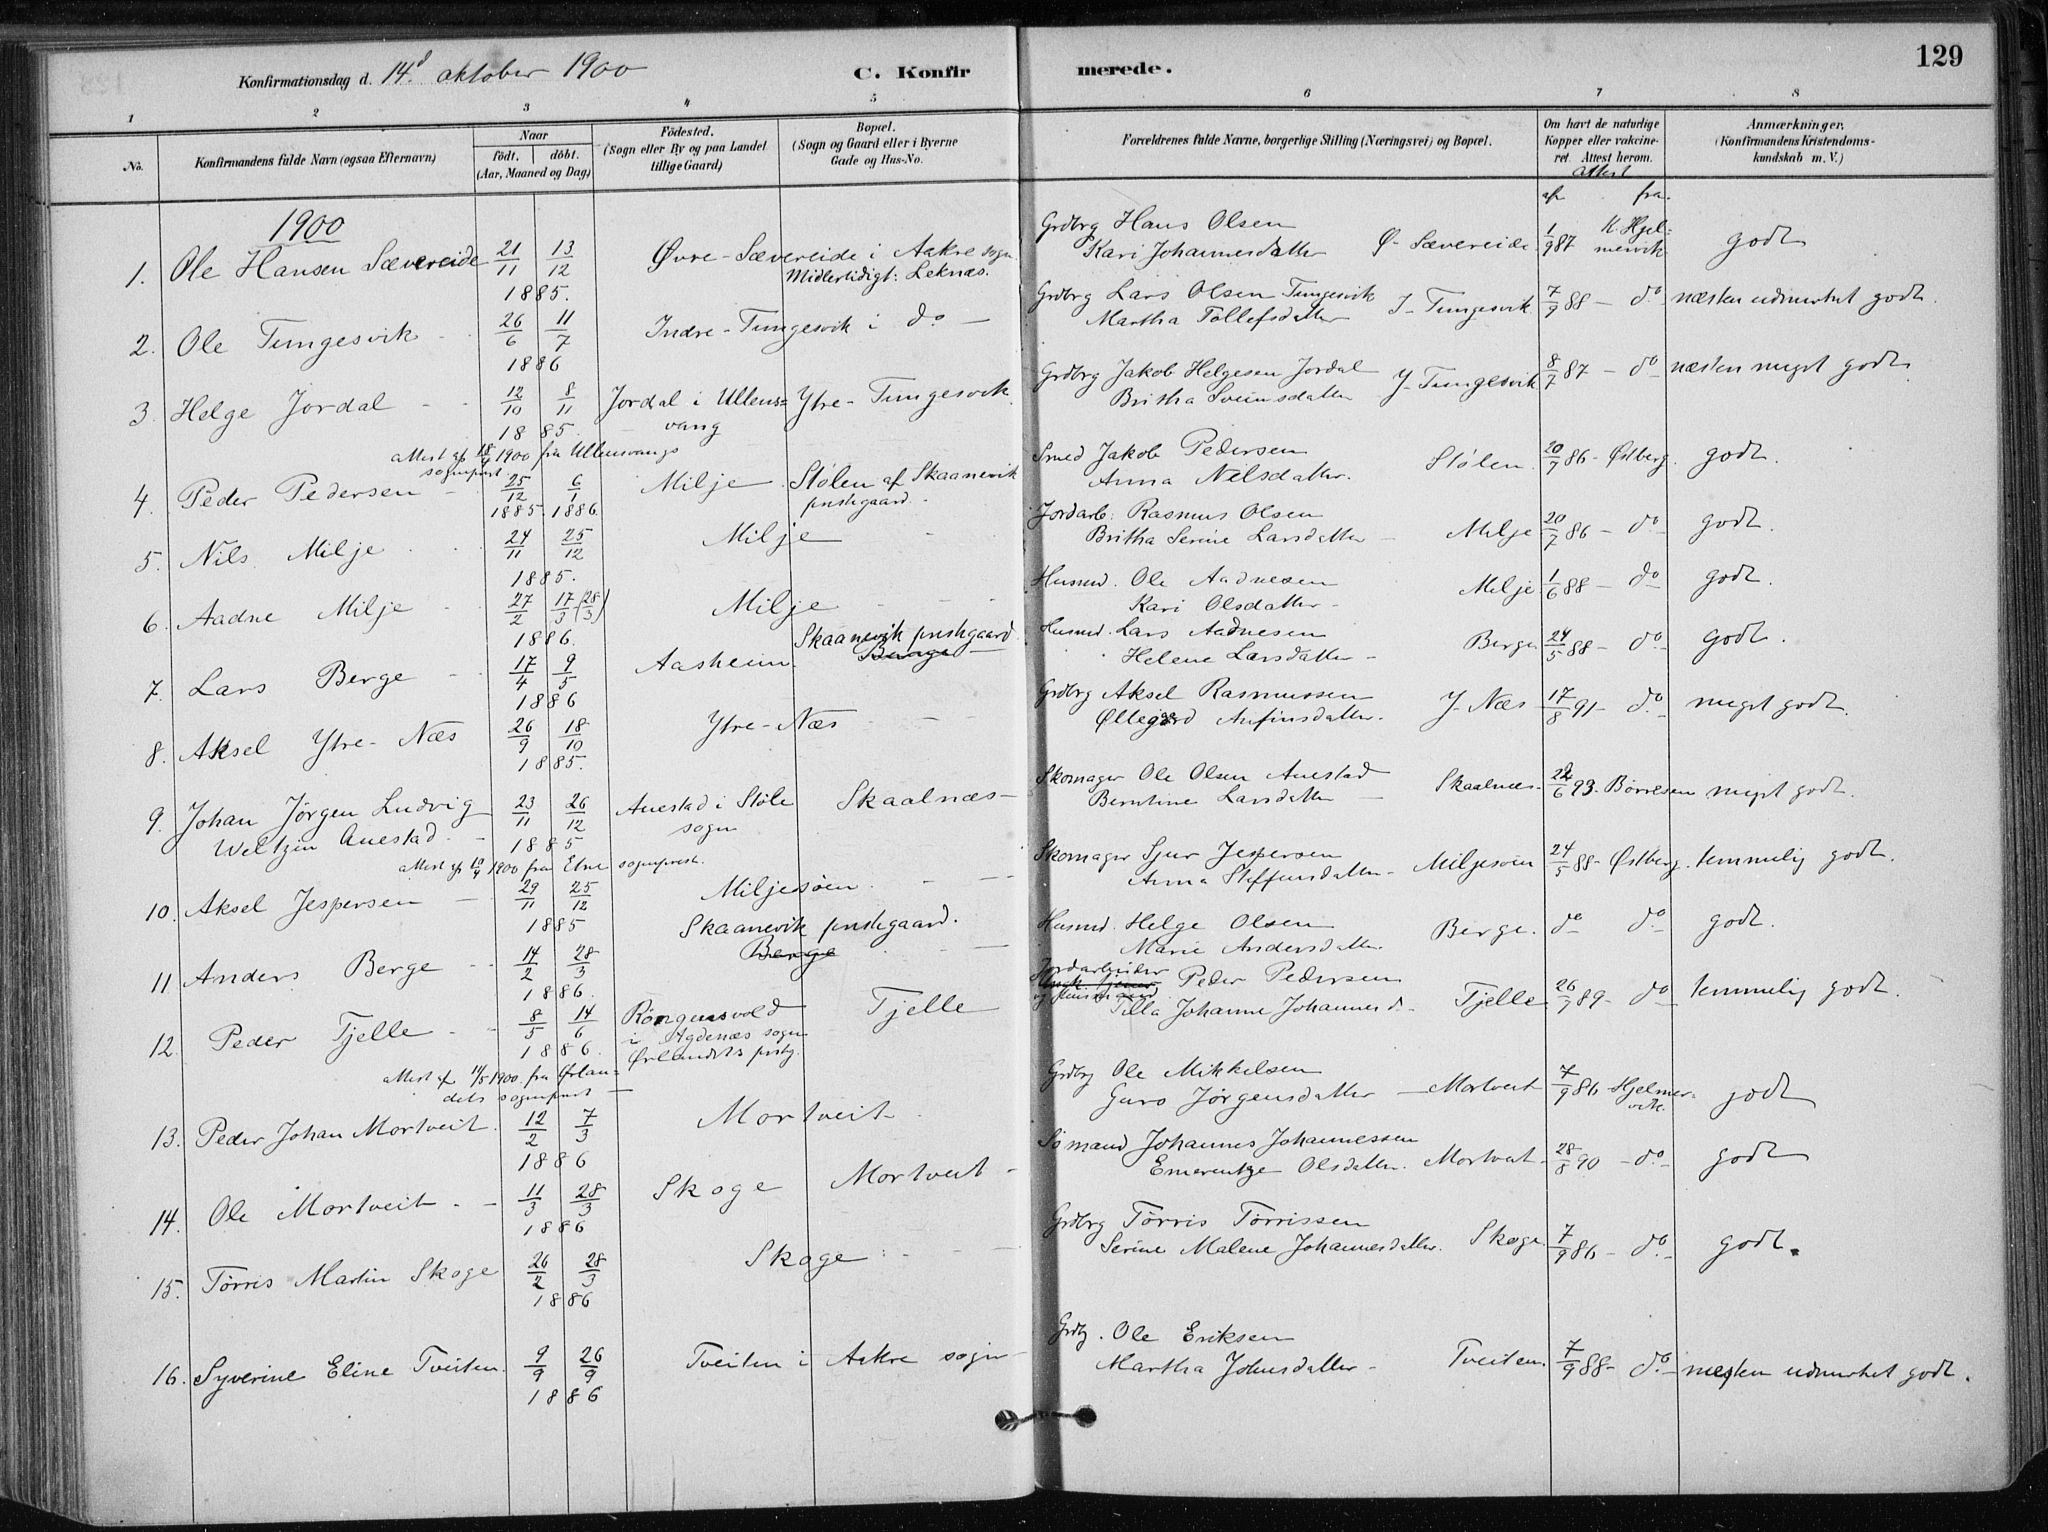 129
Konfirmationsdag d. 14d oktober 1900 C. Konfir merede.
1 2 3 4 5 6 7 8
No. Konfirmandens fulde Navn (ogsaa Efternavn)
Naar
födt. döbt.
(Aar, Maaned og Dag)
Födested.
(Sogn eller By og paa Landet
tillige Gaard)
Bopæl.
(Sogn og Gaard eller i Byerne
Gade og Hus-No.
Forældrenes fulde Navne, borgerlige Stilling (Næringsvei) og Bopæl.
Om havt de naturlige
Kopper eller vakcine-
ret. Attest herom.
Anmærkninger,
(Konfirmandens Kristendoms-
kundskab m. V.)
attest
af fra
1900
1. Ole Hansen Sævereide 21/11 13/12 Øvre-Sævereide i Aakre sogn
1885. Midlertidigt: Leknæs.
Grdbrg Hans Olsen
Kari Johannesdatter Ø-Sævereide 1/9 87 K. Hjel-
mervik godt
2. Ole Tungesvik 26/6 11/7 Indre-Tungesvik i do
1886
Grdbrg Lars Olsen Tungesvik
Martha Tollefsdatter I-Tungesvik 7/9 88 - do næsten udmerket godt.
3. Helge Jordal 12/10 8/11 Jordal i Ullens= Ytre-Tungesvik
18 85. vang
Attest af 18/4 1900 fra Ullensvangs
sogneprest
Grdbrg Jakob Helgesen Jordal
Britha Sveinsdatter Y-Tungesvik 8/7 87 - do næsten meget godt
4. Peder Pedersen 25/12 6/1 Milje Stølen af Skaanevik
1885. 1886. prestegaard.
Smed Jakob Pedersen
Anna Nilsdatter. Stølen. 20/7 86 - Østberg. godt.
5. Nils Milje 24/11 25/12 Milje
1885.
Jordarb: Rasmus Olsen
Britha Serine Larsdatter Milje 20/7 86 - do godt.
6. Aadne Milje 27/2 17/3 (28/3) Milje
1886.
Husmd. Ole Aadnesen
Kari Olsdatter Milje 1/6 88 - do godt.
7. Lars Berge 17/4 9/5 Aasheim Skaanevik prestegaard
Berge
1886
Husmd. Lars Aadnesen
Helene Larsdatter Berge 24/5 88 - do godt.
8. Aksel Ytre-Næs 26/9 18/10 Ytre-Næs
1885.
Grdbrg Aksel Rasmussen
Øllegaard Anfinsdatter. Y-Næs 17/8 91 - do meget godt.
9. Johan Jörgen Ludvig 23/11 26/12 Auestad i Støle Skaalnæs
Weltzin Auestad 1885 sogn
Attest af 10/4 1900 fra Etne sogneprest.
Skomager Ole Olsen Auestad
Berntine Larsdatter Skaalnæs 22/6 93. Børresen meget godt.
10. Aksel Jespersen 29/11 25/12 Miljesøen
1885
Skomager Sjur Jespersen
Anna Steffensdatter Miljesøen 24/5 88 - Østberg. temmelig godt.
11. Anders Berge 14/2 28/3 Skaanevik prestegaard.
Berge
1886.
Husmd. Helge Olsen
Marie Andersdatter. Berge. do do godt.
12. Peder Tjelle 8/5 14/6 Röngensvold Tjelle
1886. i Agdenæs sogn
Ørlandets prstg.
Attest af 11/5 1900. fra Ørlan=
dets sogneprest
Jordarbeider
Peder Pedersen
Johanne Johannesd. Tjelle. 26/9 89 - do temmelig godt.
13. Peder Johan Mortveit. 12/2 7/3 Mortveit
1886
Grdbrg Ole Mikkelsen
Guro Jørgensdatter Mortveit 7/9 86 - Hjelmer-
vik. godt
14. Ole Mortveit 11/3 28/3 Skoge Mortveit
1886
Sømand Johannes Johannessen
Emerentze Olsdatter. Mortveit 28/8 90 - do godt
15. Tørris Martin Skoge 26/2 28/3 Skoge
1886
Grdbrg Tørris Tørrissen
Serine Malene Johannesdatter. Skoge 7/9 86 - do godt.
16. Syverine Eline Tveiten. 9/9 26/9 Tveiten i Aakre sogn
1886
Grdbg. Ole Eriksen
Martha Johnsdatter Tveiten. 7/9 88 - do næsten udmerket godt.